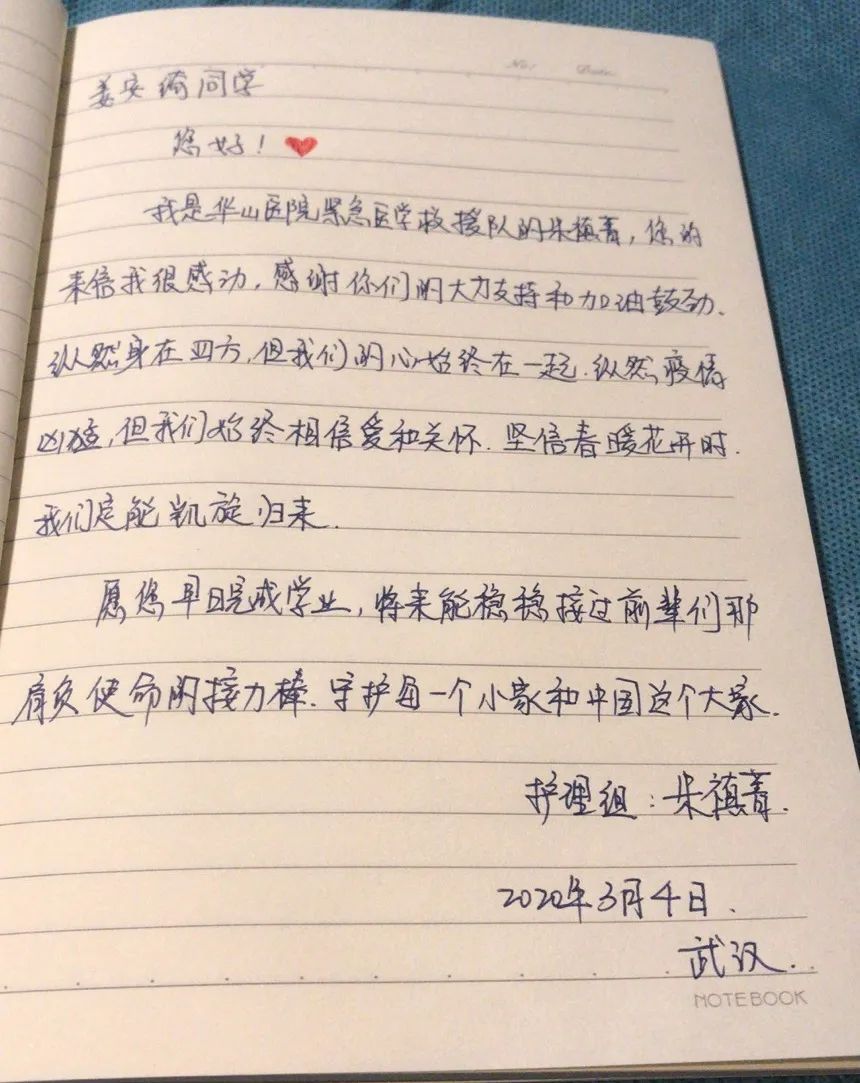 No: Date:
姜安绮同学
您好！
我是华山医院紧急医学救援队的朱祯菁，您的
来信我很感动，感谢你们的大力支持和加油鼓劲.
纵然身在四方，但我们的心始终在一起.纵然疫情
凶猛，但我们始终相信爱和关怀.坚信春暖花开时.
我们定能凯旋归来.
愿您早日完成学业，将来能稳稳接过前辈们那
肩负使命的接力棒.守护每一个小家和中国这个大家.
护理组：朱祯菁.
2020年3月4日.
武汉.
NOTEBOOK